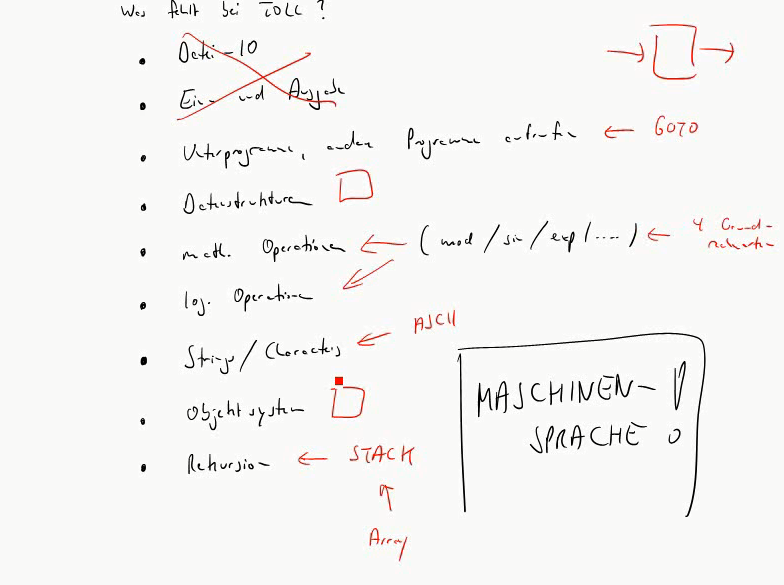 Was fehlt bei TOLL ?
• Datei-IO
• Ein- und Ausgabe
• Unterprogramme, andere Programme aufrufen ← GOTO
• Datenstrukturen
• math. Operationen ← ( mod / sin / exp / .... ) ← 4 Grund-
rechenarten
• log. Operationen
• Strings / Characters ← ASCII
• Objektsystem
MASCHINEN- !
SPRACHE
• Rekursion ← STACK
Array